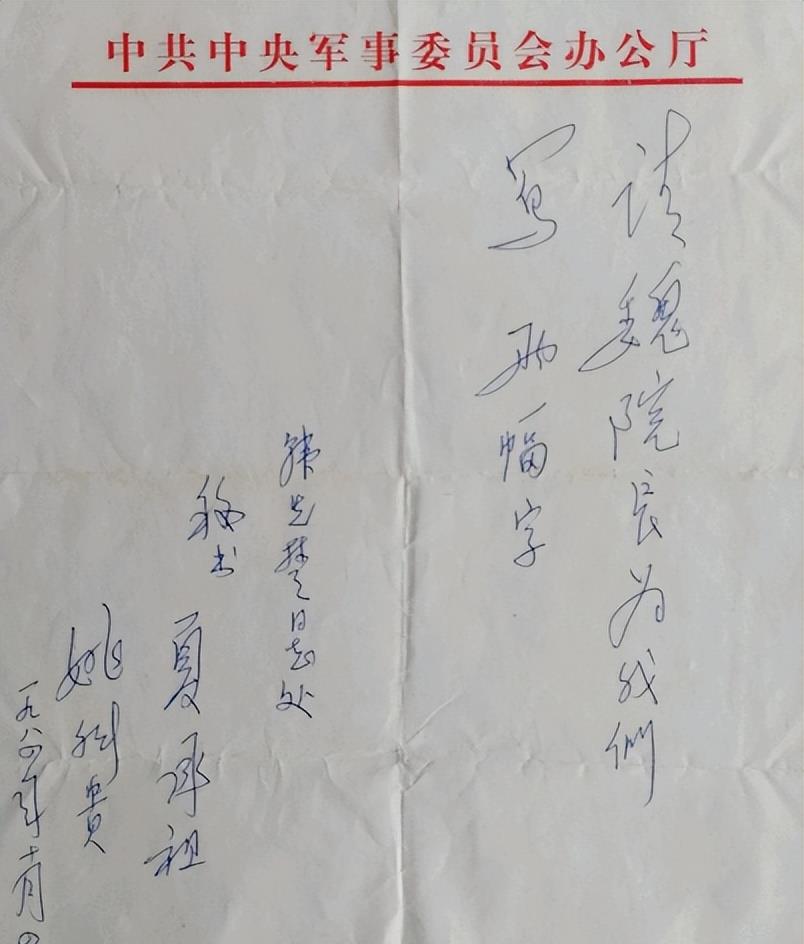 中共中央军事委员会办公厅
请魏院长为我们
写两幅字
韩先楚同志处
秘书
夏承祖
姚科贵
一九八四年十月